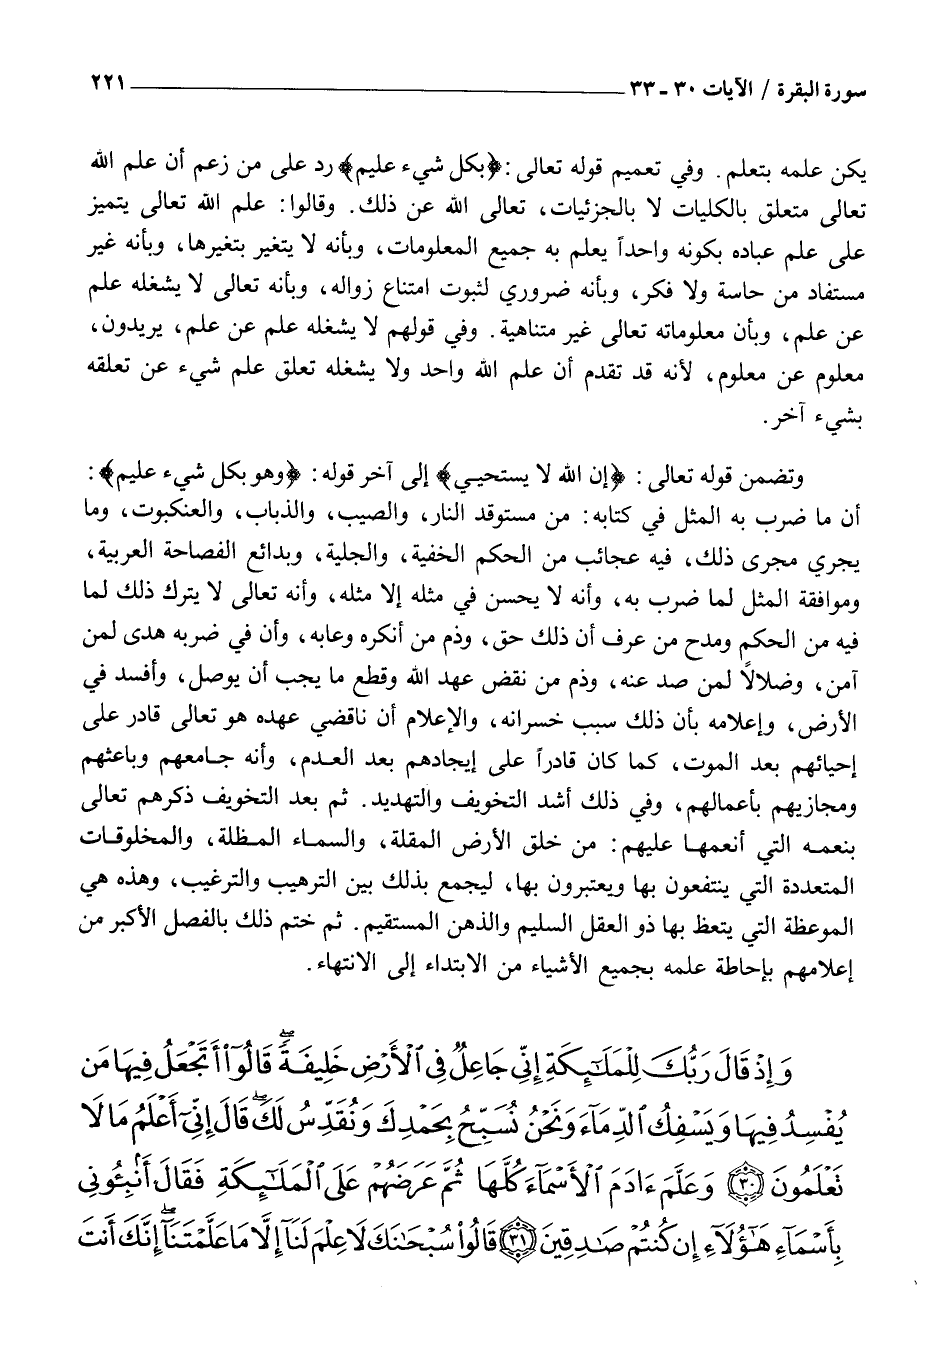 سورة البقرة / الآيات ٣٠ ـ ٣٣ ٢٢١
يكن علمه بتعلم. وفي تعميم قوله تعالى: ﴿بكل شيء عليم﴾ رد على من زعم أن علم الله
تعالى متعلق بالكليات لا بالجزئيات، تعالى الله عن ذلك. وقالوا: علم الله تعالى يتميز
على علم عباده بكونه واحداً يعلم به جميع المعلومات، وبأنه لا يتغير بتغيرها، وبأنه غير
مستفاد من حاسة ولا فكر، وبأنه ضروري لثبوت امتناع زواله، وبأنه تعالى لا يشغله علم
عن علم، وبأن معلوماته تعالى غير متناهية. وفي قولهم لا يشغله علم عن علم، يريدون،
معلوم عن معلوم، لأنه قد تقدم أن علم الله واحد ولا يشغله تعلق علم شيء عن تعلقه
بشيء آخر.
وتضمن قوله تعالى: ﴿إن الله لا يستحيـي﴾ إلى آخر قوله: ﴿وهو بكل شيء عليم﴾:
أن ما ضرب به المثل في كتابه: من مستوقد النار، والصيب، والذباب، والعنكبوت، وما
يجري مجرى ذلك، فيه عجائب من الحكم الخفية، والجلية، وبدائع الفصاحة العربية،
وموافقة المثل لما ضرب به، وأنه لا يحسن في مثله إلا مثله، وأنه تعالى لا يترك ذلك لما
فيه من الحكم ومدح من عرف أن ذلك حق، وذم من أنكره وعابه، وأن في ضربه هدى لمن
آمن، وضلالًا لمن صد عنه، وذم من نقض عهد الله وقطع ما يجب أن يوصل، وأفسد في
الأرض، وإعلامه بأن ذلك سبب خسرانه، والإعلام أن ناقضي عهده هو تعالى قادر على
إحيائهم بعد الموت، كما كان قادراً على إيجادهم بعد العدم، وأنه جامعهم وباعثهم
ومجازيهم بأعمالهم، وفي ذلك أشد التخويف والتهديد. ثم بعد التخويف ذكرهم تعالى
بنعمه التي أنعمها عليهم: من خلق الأرض المقلة، والسماء المظلة، والمخلوقات
المتعددة التي ينتفعون بها ويعتبرون بها، ليجمع بذلك بين الترهيب والترغيب، وهذه هي
الموعظة التي يتعظ بها ذو العقل السليم والذهن المستقيم. ثم ختم ذلك بالفصل الأكبر من
إعلامهم بإحاطة علمه بجميع الأشياء من الابتداء إلى الانتهاء.
وَإِذْ قَالَ رَبُّكَ لِلْمَلَٰٓئِكَةِ إِنِّى جَاعِلٌ فِى ٱلْأَرْضِ خَلِيفَةً ۖ قَالُوٓا۟ أَتَجْعَلُ فِيهَا مَن
يُفْسِدُ فِيهَا وَيَسْفِكُ ٱلدِّمَآءَ وَنَحْنُ نُسَبِّحُ بِحَمْدِكَ وَنُقَدِّسُ لَكَ ۖ قَالَ إِنِّىٓ أَعْلَمُ مَا لَا
تَعْلَمُونَ ﴿٣٠﴾ وَعَلَّمَ ءَادَمَ ٱلْأَسْمَآءَ كُلَّهَا ثُمَّ عَرَضَهُمْ عَلَى ٱلْمَلَٰٓئِكَةِ فَقَالَ أَنۢبِـُٔونِى
بِأَسْمَآءِ هَٰٓؤُلَآءِ إِن كُنتُمْ صَٰدِقِينَ ﴿٣١﴾ قَالُوا۟ سُبْحَٰنَكَ لَا عِلْمَ لَنَآ إِلَّا مَا عَلَّمْتَنَآ ۖ إِنَّكَ أَنتَ